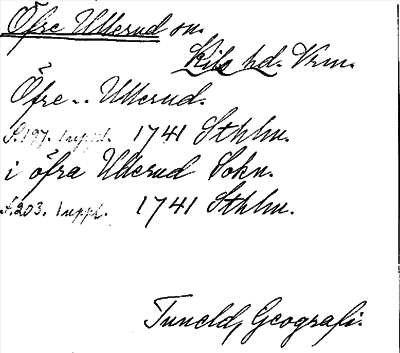 Öfre Ullerud sn.
Kils hd. Vrm.
Öfre .. Ullerud.
S. 197. 1 uppl. 1741 Sthlm.
i öfra Ullerud Sokn.
S. 203. 1 uppl. 1741 Sthlm.
Tuneld, Geografi.